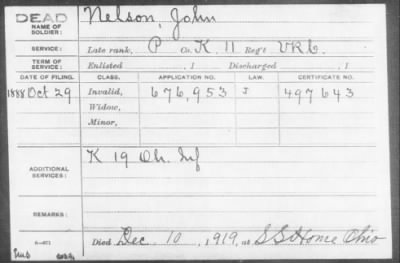 DEAD
NAME OF SOLDIER: Nelson, John
SERVICE: Late rank, P Co. K, 11 Reg't VRC.
TERM OF SERVICE: Enlisted , 1 Discharged , 1
DATE OF FILING. CLASS. APPLICATION NO. LAW. CERTIFICATE NO.
1888 Oct 29 Invalid, 676,953 J 497643
Widow,
Minor,
ADDITIONAL SERVICES: K 19 Oh. Inf
REMARKS:
Died Dec. 10, 1919, at S S Home Ohio